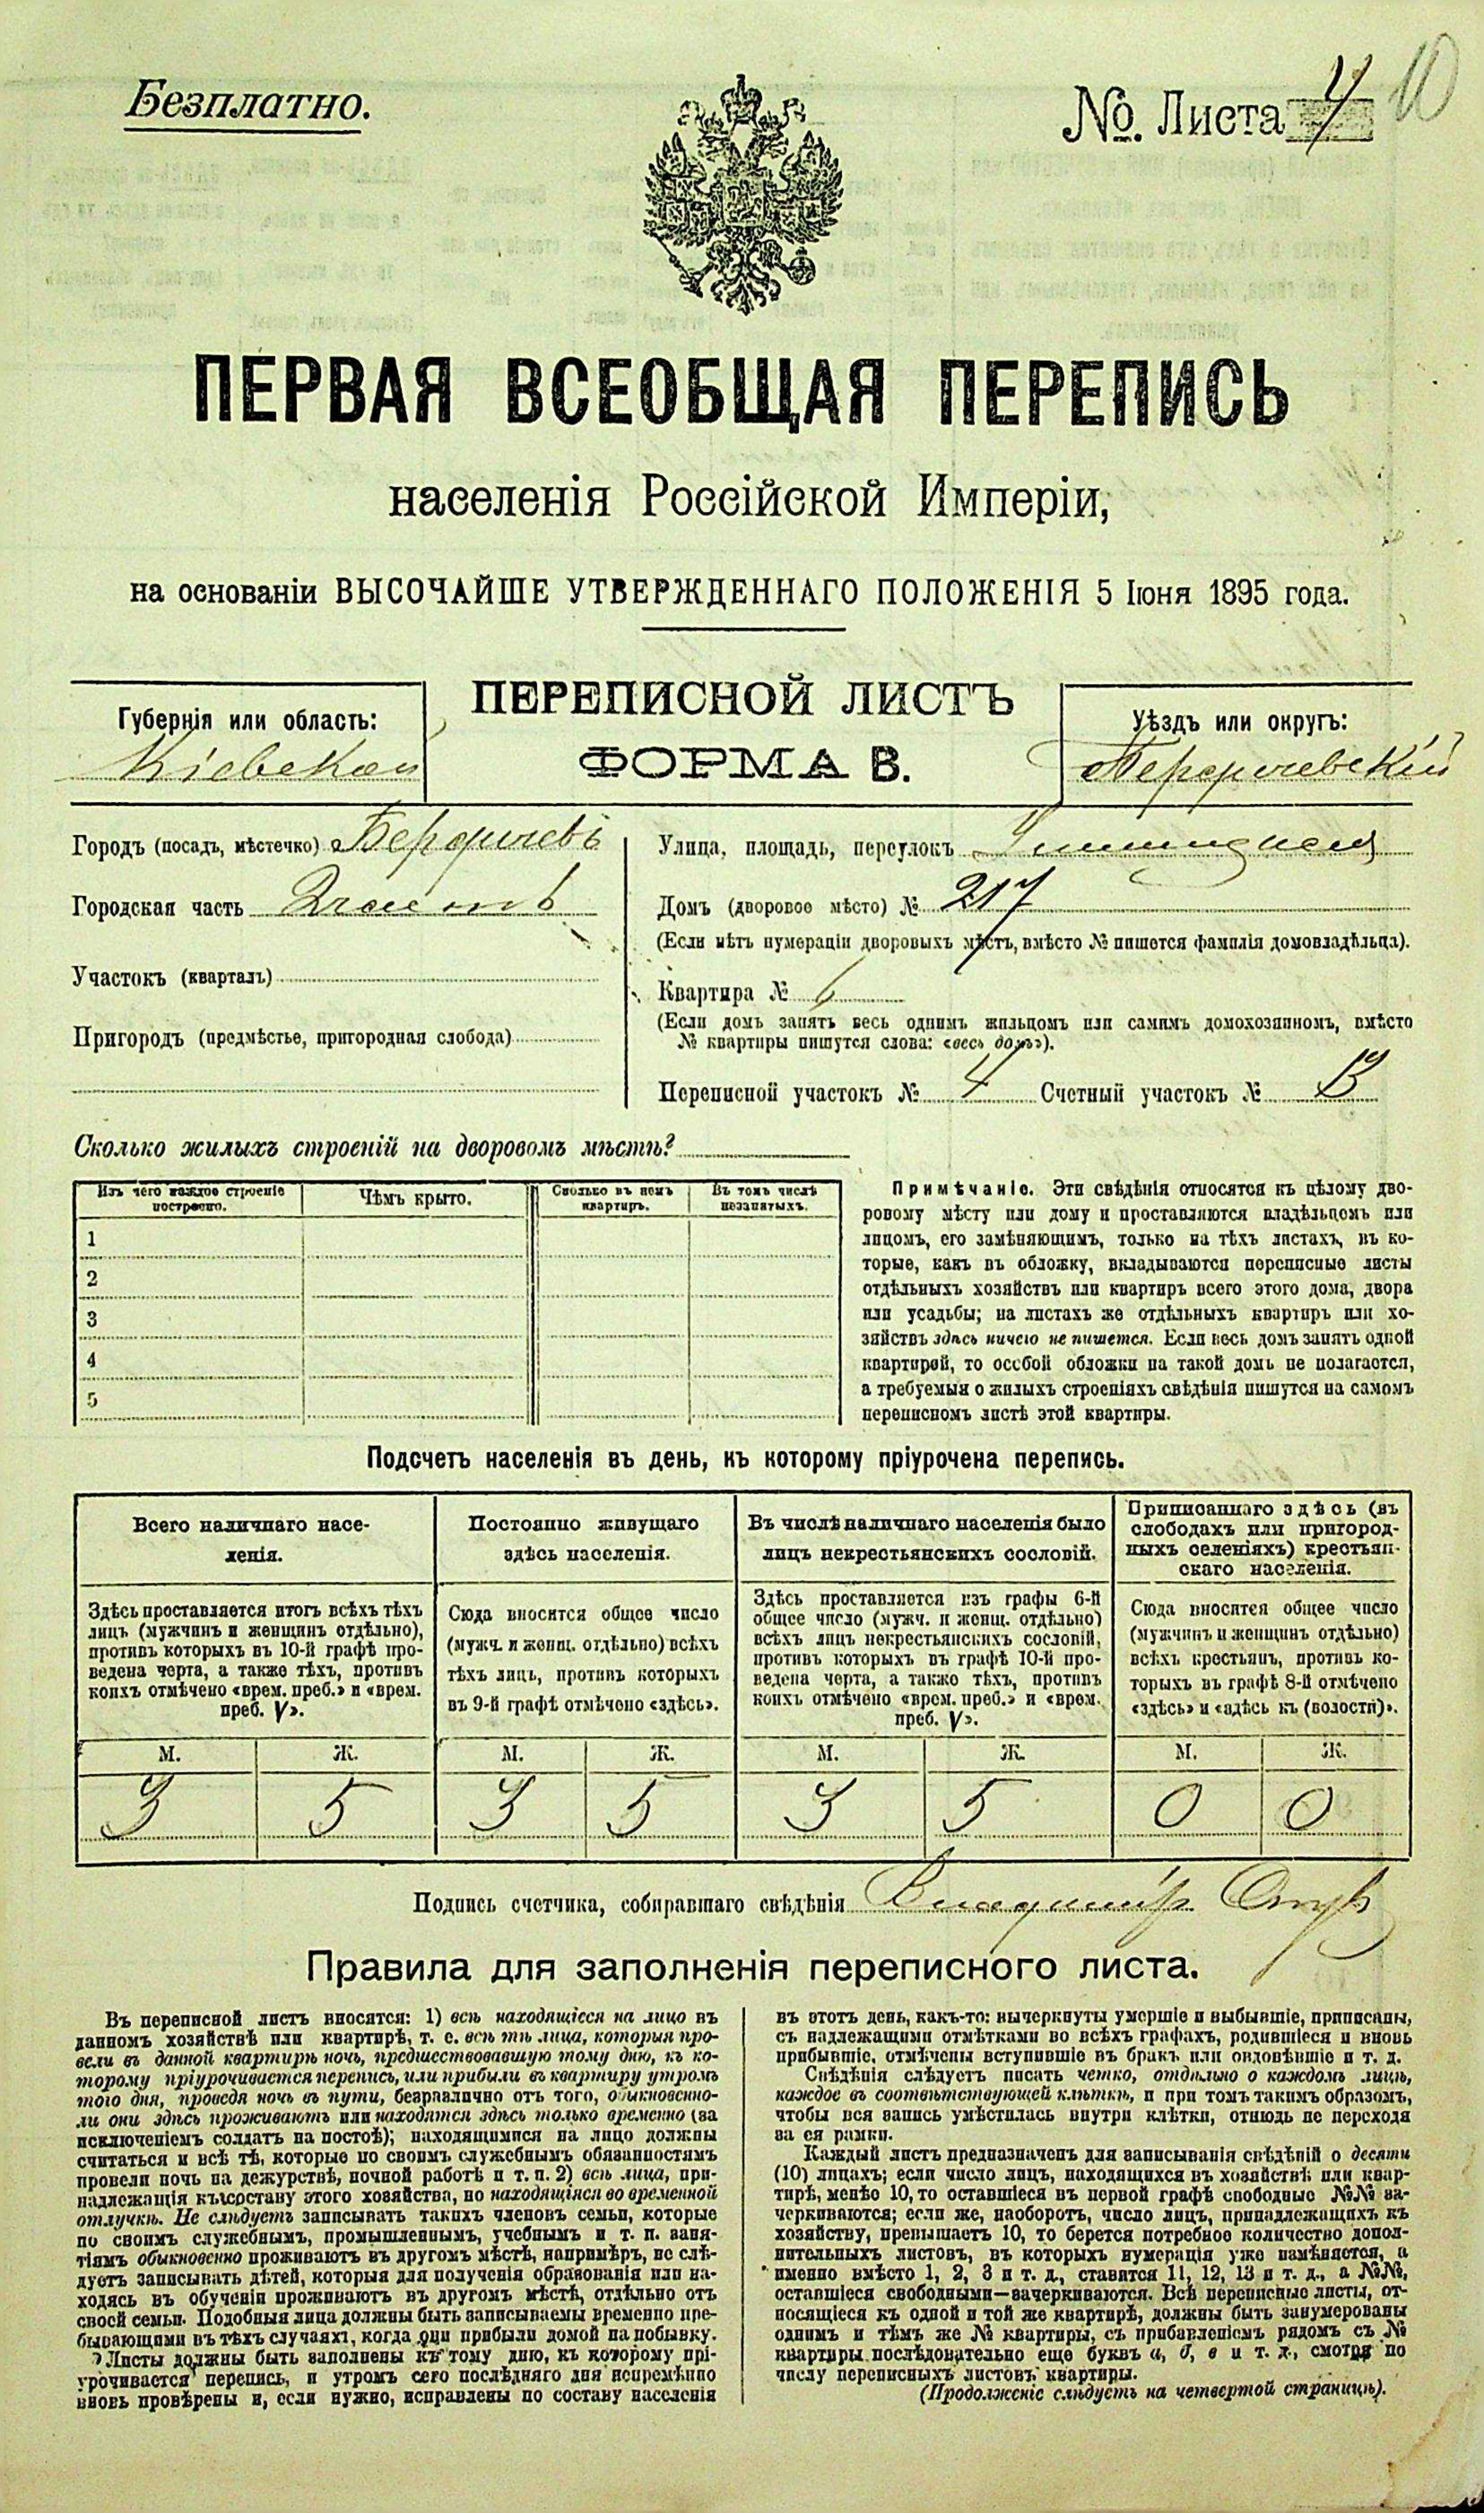 Безплатно.
№ Листа 4
10
ПЕРВАЯ ВСЕОБЩАЯ ПЕРЕПИСЬ
населенія Россійской Имперіи,
на основаніи ВЫСОЧАЙШЕ УТВЕРЖДЕННАГО ПОЛОЖЕНІЯ 5 Іюня 1895 года.
ПЕРЕПИСНОЙ ЛИСТЪ
ФОРМА В.
Губернія или область:
Кіевской
Уѣздъ или округъ:
Бердичевскій
Городъ (посадъ, мѣстечко) Бердичевъ
Городская часть
Участокъ (кварталъ)
Пригородъ (предмѣстье, пригородная слобода)
Улица, площадь, переулокъ
Домъ (дворовое мѣсто) № 217
(Если нѣтъ нумераціи дворовыхъ мѣстъ, вмѣсто № пишется фамилія домовладѣльца).
Квартира № 6
(Если домъ занятъ весь однимъ жильцомъ или самимъ домохозяиномъ, вмѣсто
№ квартиры пишутся слова: «весь домъ»).
Переписной участокъ № 4 Счетный участокъ №
Сколько жилыхъ строеній на дворовомъ мѣстѣ?
Изъ чего каждое строеніе
построено.
Чѣмъ крыто.
Сколько въ немъ
квартиръ.
Въ томъ числѣ
незанятыхъ.
1
2
3
4
5
Примѣчаніе. Эти свѣдѣнія относятся къ цѣлому дво-
ровому мѣсту или дому и проставляются владѣльцемъ или
лицомъ, его замѣняющимъ, только на тѣхъ листахъ, въ ко-
торые, какъ въ обложку, вкладываются переписные листы
отдѣльныхъ хозяйствъ или квартиръ всего этого дома, двора
или усадьбы; на листахъ же отдѣльныхъ квартиръ или хо-
зяйствъ здѣсь ничего не пишется. Если весь домъ занятъ одной
квартирой, то особой обложки на такой домъ не полагается,
а требуемыя о жилыхъ строеніяхъ свѣдѣнія пишутся на самомъ
переписномъ листѣ этой квартиры.
Подсчетъ населенія въ день, къ которому пріурочена перепись.
Всего наличнаго насе-
ленія.
Постоянно живущаго
здѣсь населенія.
Въ числѣ наличнаго населенія было
лицъ некрестьянскихъ сословій.
Приписаннаго здѣсь (въ
слободахъ или пригород-
ныхъ селеніяхъ) крестьян-
скаго населенія.
Здѣсь проставляется итогъ всѣхъ тѣхъ
лицъ (мужчинъ и женщинъ отдѣльно),
противъ которыхъ въ 10-й графѣ про-
ведена черта, а также тѣхъ, противъ
коихъ отмѣчено «врем. преб.» и «врем.
преб. V».
Сюда вносится общее число
(мужч. и женщ. отдѣльно) всѣхъ
тѣхъ лицъ, противъ которыхъ
въ 9-й графѣ отмѣчено «здѣсь».
Здѣсь проставляется изъ графы 6-й
общее число (мужч. и женщ. отдѣльно)
всѣхъ лицъ некрестьянскихъ сословій,
противъ которыхъ въ графѣ 10-й про-
ведена черта, а также тѣхъ, противъ
коихъ отмѣчено «врем. преб.» и «врем.
преб. V».
Сюда вносится общее число
(мужчинъ и женщинъ отдѣльно)
всѣхъ крестьянъ, противъ ко-
торыхъ въ графѣ 8-й отмѣчено
«здѣсь» и «здѣсь къ (волости)».
М. Ж. М. Ж. М. Ж. М. Ж.
3 5 3 5 3 5 0 0
Подпись счетчика, собиравшаго свѣдѣнія Владиміръ
Правила для заполненія переписного листа.
Въ переписной листъ вносятся: 1) всѣ находящіеся на лицо въ
данномъ хозяйствѣ или квартирѣ, т. е. всѣ тѣ лица, которыя про-
вели въ данной квартирѣ ночь, предшествовавшую тому дню, къ ко-
торому пріурочивается перепись, или прибыли въ квартиру утромъ
того дня, проведя ночь въ пути, безразлично отъ того, обыкновенно-
ли они здѣсь проживаютъ или находятся здѣсь только временно (за
исключеніемъ солдатъ на постоѣ); находящимися на лицо должны
считаться и всѣ тѣ, которые по своимъ служебнымъ обязанностямъ
провели ночь на дежурствѣ, ночной работѣ и т. п. 2) всѣ лица, при-
надлежащія къ составу этого хозяйства, но находящіяся во временной
отлучкѣ. Не слѣдуетъ записывать такихъ членовъ семьи, которые
по своимъ служебнымъ, промышленнымъ, учебнымъ и т. п. заня-
тіямъ обыкновенно проживаютъ въ другомъ мѣстѣ, напримѣръ, не слѣ-
дуетъ записывать дѣтей, которыя для полученія образованія или на-
ходясь въ обученіи проживаютъ въ другомъ мѣстѣ, отдѣльно отъ
своей семьи. Подобныя лица должны быть записываемы временно пре-
бывающими въ тѣхъ случаяхъ, когда они прибыли домой на побывку.
Листы должны быть заполнены къ тому дню, къ которому прі-
урочивается перепись, и утромъ сего послѣдняго дня непремѣнно
вновь провѣрены и, если нужно, исправлены по составу населенія
въ этотъ день, какъ-то: вычеркнуты умершіе и выбывшіе, приписаны,
съ надлежащими отмѣтками во всѣхъ графахъ, родившіеся и вновь
прибывшіе, отмѣчены вступившіе въ бракъ или овдовѣвшіе и т. д.
Свѣдѣнія слѣдуетъ писать четко, отдѣльно о каждомъ лицѣ,
каждое въ соотвѣтствующей клѣткѣ, и при томъ такимъ образомъ,
чтобы вся запись умѣстилась внутри клѣтки, отнюдь не переходя
за ея рамки.
Каждый листъ предназначенъ для записыванія свѣдѣній о десяти
(10) лицахъ; если число лицъ, находящихся въ хозяйствѣ или квар-
тирѣ, менѣе 10, то оставшіеся въ первой графѣ свободные №№ за-
черкиваются; если же, наоборотъ, число лицъ, принадлежащихъ къ
хозяйству, превышаетъ 10, то берется потребное количество допол-
нительныхъ листовъ, въ которыхъ нумерація уже измѣняется, а
именно вмѣсто 1, 2, 3 и т. д., ставятся 11, 12, 13 и т. д., а №№,
оставшіеся свободными—зачеркиваются. Всѣ переписные листы, от-
носящіеся къ одной и той же квартирѣ, должны быть занумерованы
однимъ и тѣмъ же № квартиры, съ прибавленіемъ рядомъ съ №
квартиры послѣдовательно еще буквъ а, б, в и т. д., смотря по
числу переписныхъ листовъ квартиры.
(Продолженіе слѣдуетъ на четвертой страницѣ).